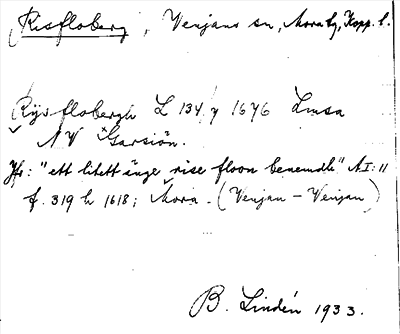 Risfloberg, Venjans sn, Mora tg, Kopp. l.
Rijsflobergh L 134 y 1676 Lmsa
NV Garsiön.
Jfr: "ett litett änge rise floon benemdh" AI:11
f. 319 h 1618; Mora. (Venjan - Venjan)
B. Lindén 1933.